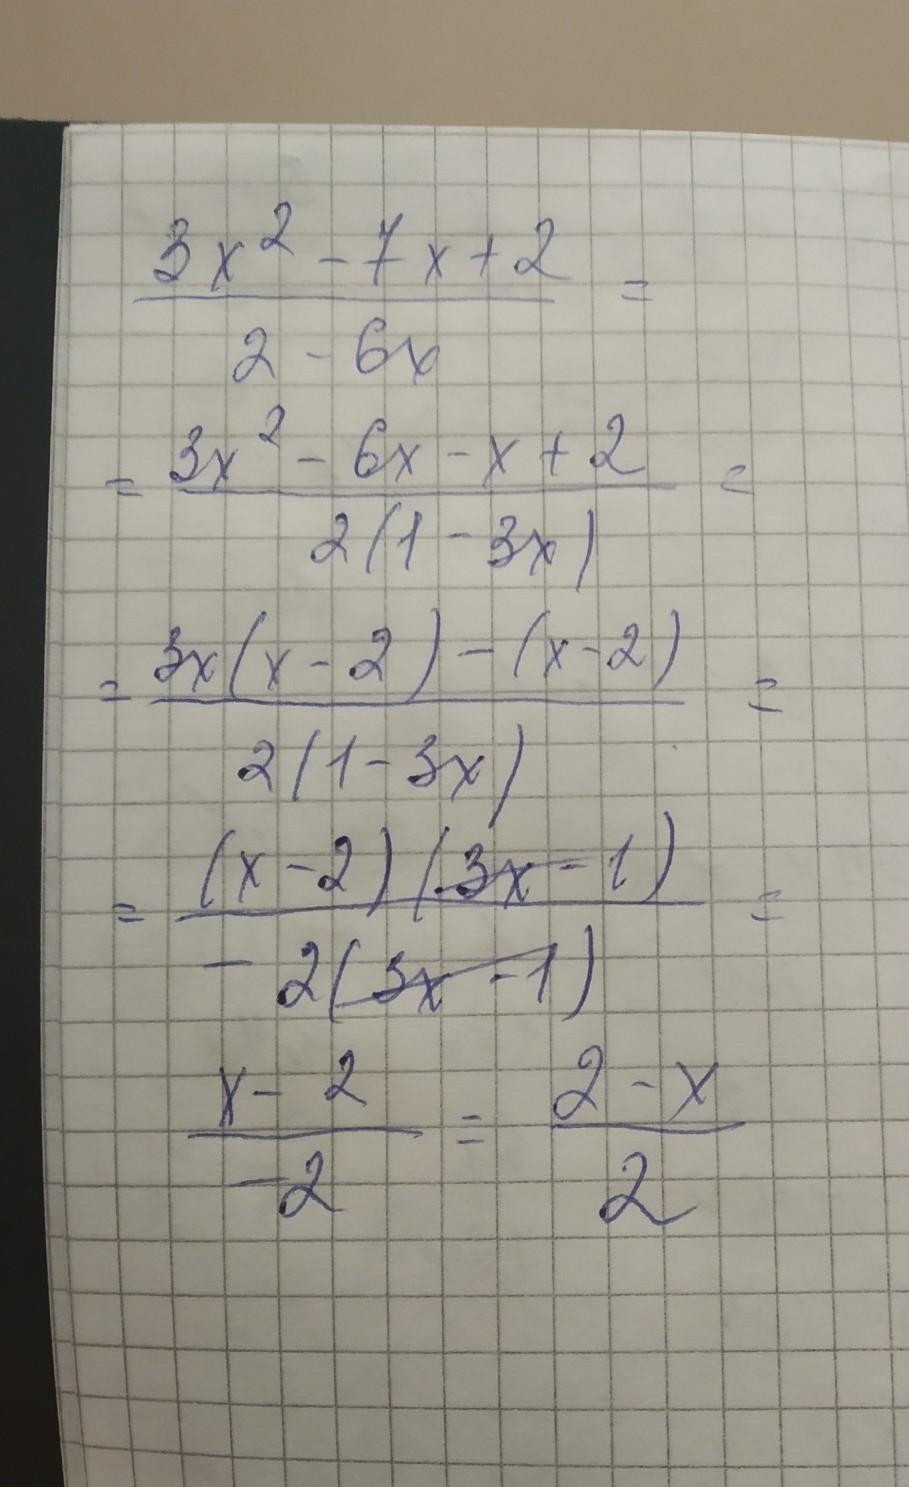 3x² - 7x + 2 =
2 - 6x
= 3x² - 6x - x + 2 =
2(1 - 3x)
= 3x(x - 2) - (x - 2) =
2(1 - 3x)
= (x - 2)(3x - 1) =
- 2(3x - 1)
x - 2 = 2 - x
-2 2